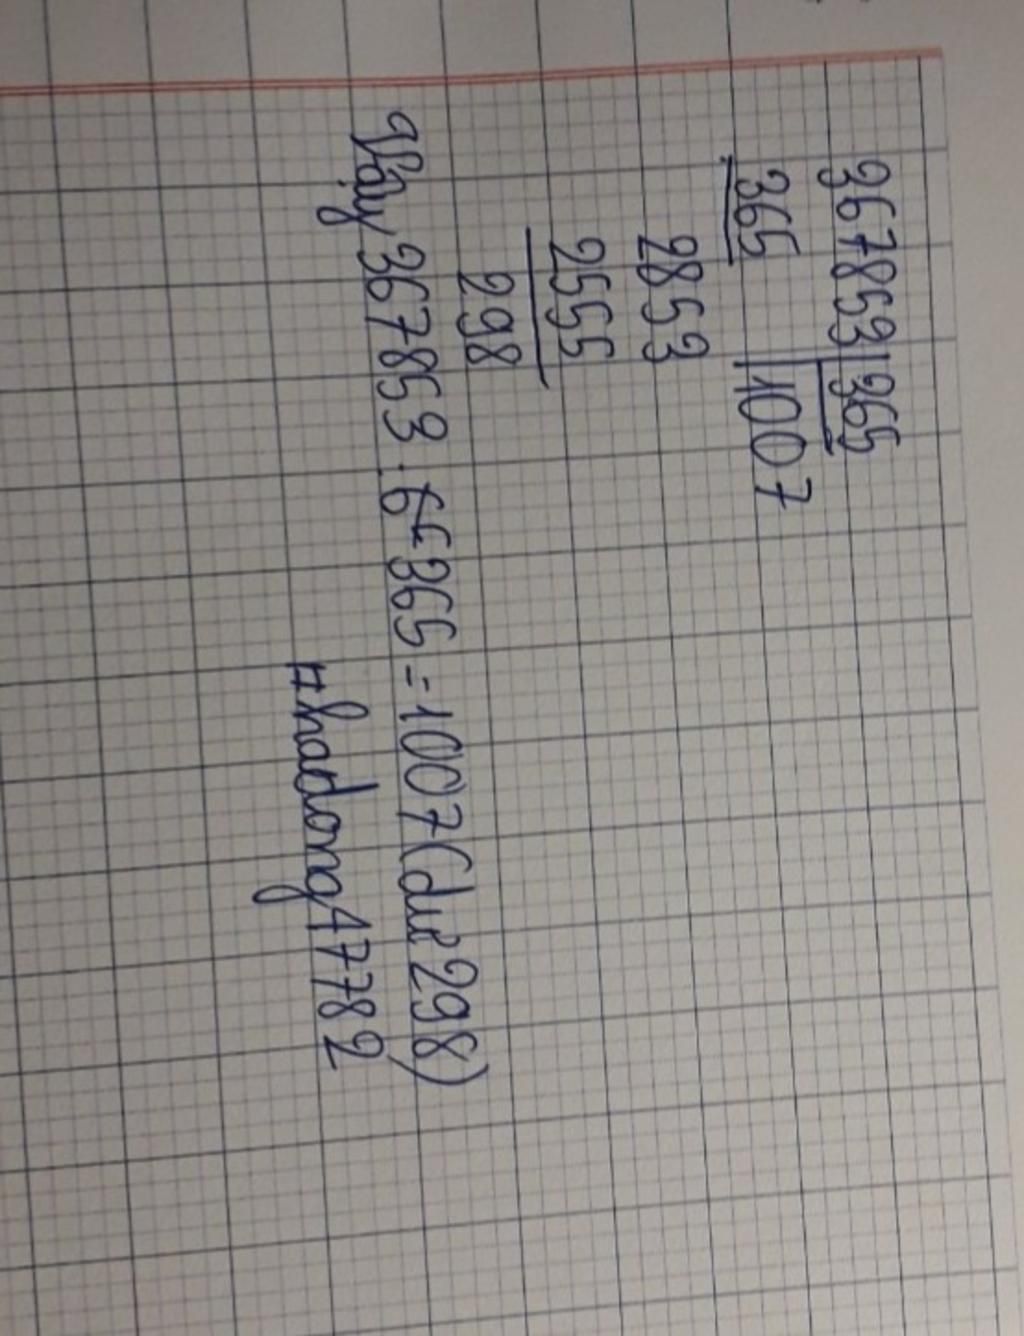 367853 365
365 1007
2853
2555
298
Vậy 367853 : 365 = 1007 (dư 298)
#hadong47782